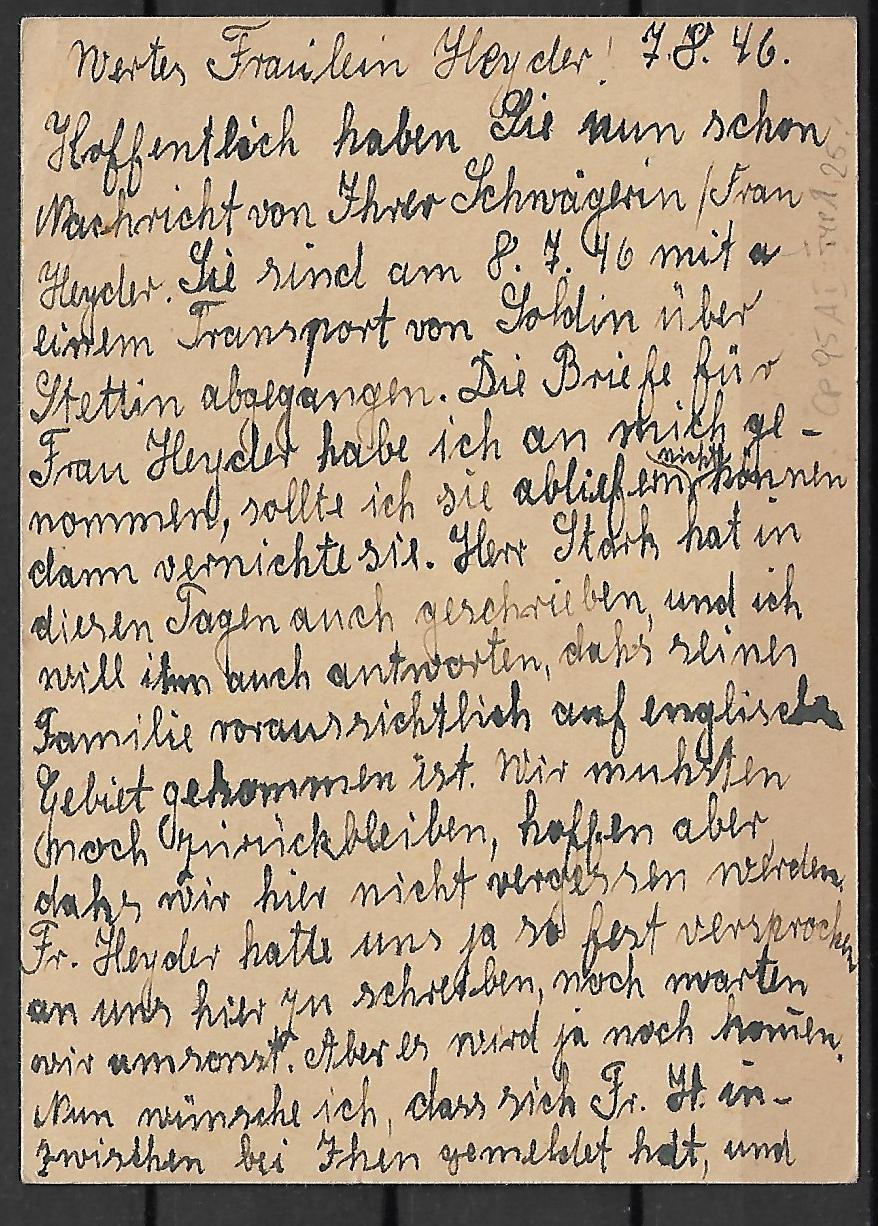 Wertes Fräulein Heyder! 7.8.46.
Hoffentlich haben Sie nun schon
Nachricht von Ihrer Schwägerin / Frau
Heyder. Sie sind am 8.7.46 mit
einem Transport von Soldin über
Stettin abgegangen. Die Briefe für
Frau Heyder habe ich an mich ge-
nommen, sollte ich sie abliefern nicht können
dann vernichte sie. Herr Stark hat in
diesen Tagen auch geschrieben, und ich
will ihm auch antworten, dahs seine
Familie voraussichtlich auf englisch
Gebiet gekommen ist. Wir muhsten
noch zurückbleiben, hoffen aber
dahs wir hier nicht vergessen werden.
Fr. Heyder hatte uns ja so fest versprochen
an uns hier zu schreiben, noch warten
wir umsonst. Aber es wird ja noch kom̄en.
Nun wünsche ich, dass sich Fr. H. in-
zwischen bei Ihen gemeldet hat, und
CP 95 A I TYP A 25.-